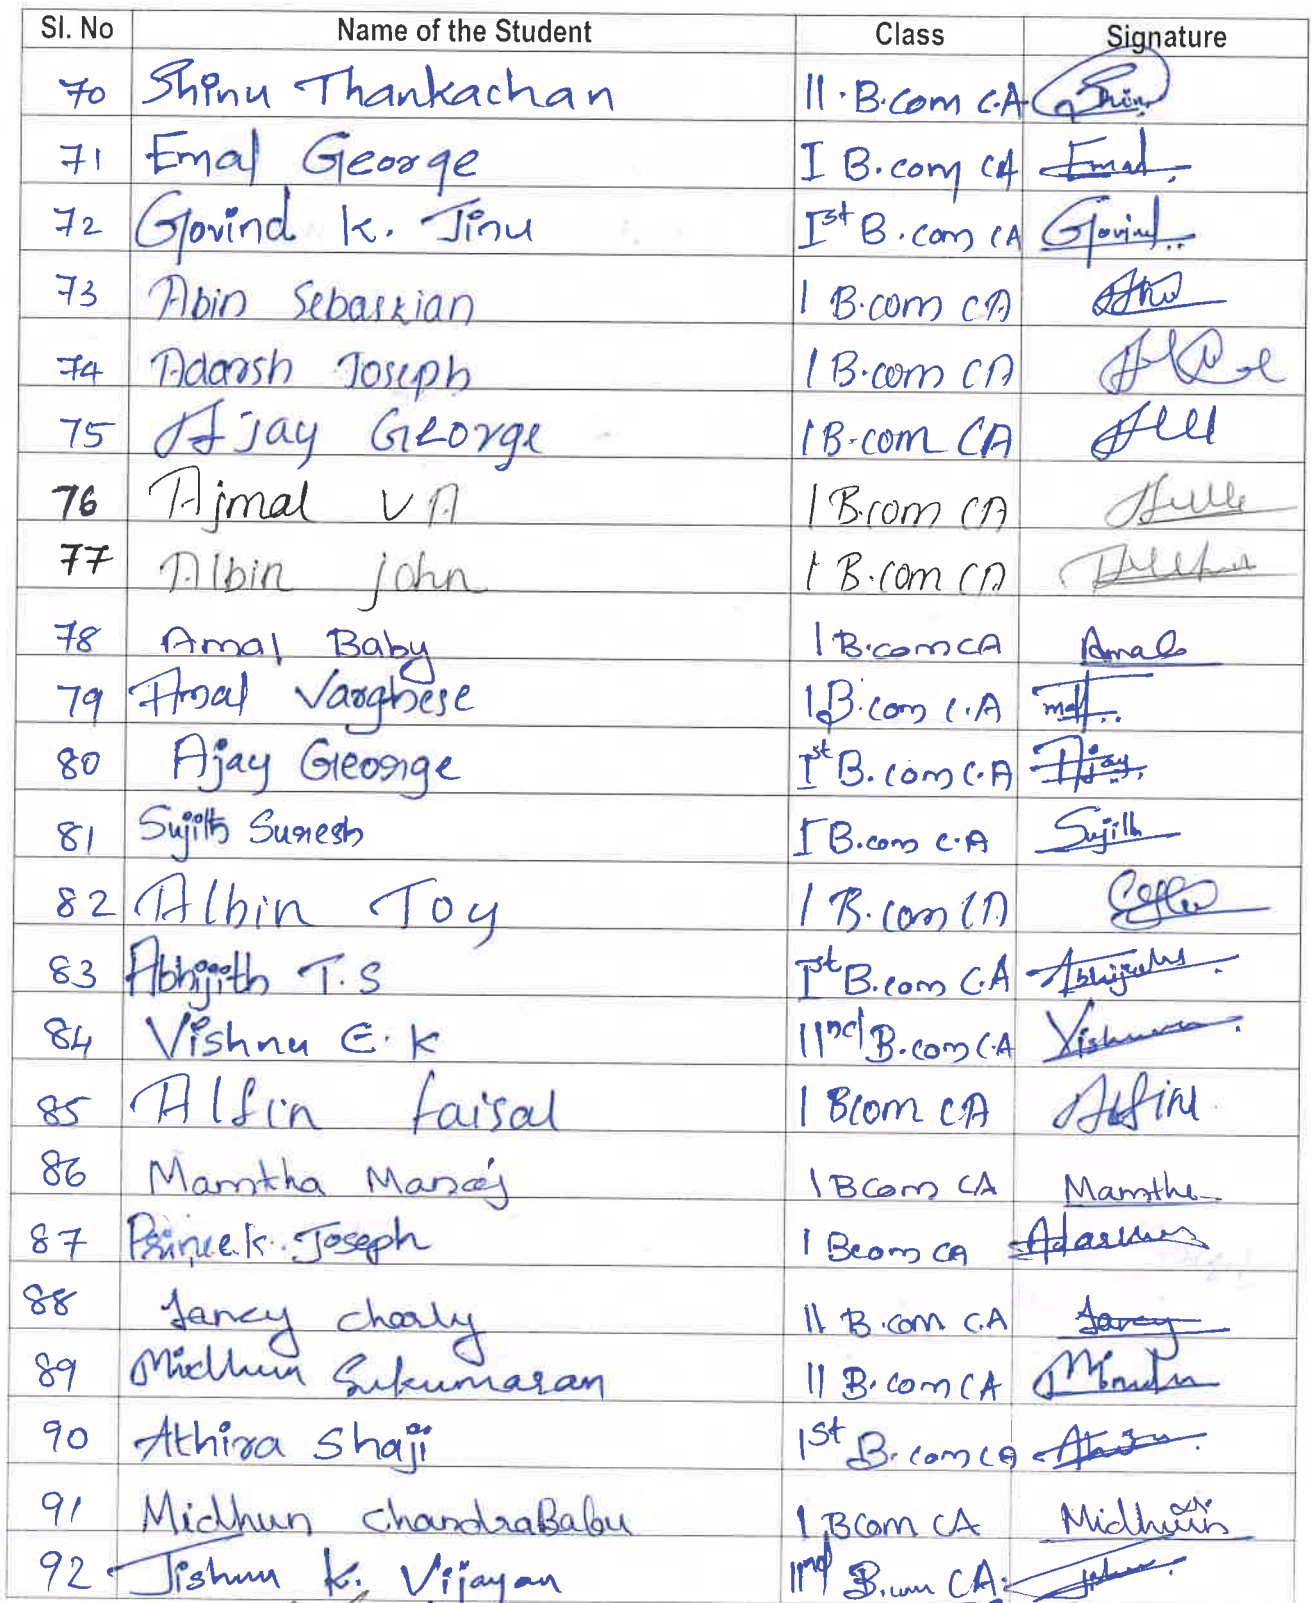 Sl. No Name of the Student Class Signature
70 Shinu Thankachan II . B.com C.A Shin
71 Emal George I B.com CA Emal
72 Govind K. Jinu Ist B.com CA Govind
73 Abin Sebastian I B.com CA
74 Adarsh Joseph I B.com CA
75 Ajay George I B.com CA
76 Ajmal V A I B.com CA
77 Albin john I B.com CA
78 Amal Baby I B.com CA Amal
79 Amal Varghese I B.com C.A
80 Ajay George Ist B.com C.A Ajay
81 Sujith Suresh I B.com C.A Sujith
82 Albin Toy I B.com CA
83 Abhijith T.S Ist B.com C.A Abhijith
84 Vishnu E.K IInd B.com C.A Vishnu
85 Alfin faisal I Bcom CA Alfin
86 Mamtha Manoj I BCom CA Mamtha
87 Prince.k. Joseph I Bcom CA
88 Jancy chaaly II B.com C.A Jancy
89 Midhun Sukumaran II B.com CA
90 Athira Shaji Ist B.com CA
91 Midhun ChandraBabu I BCom CA Midhun
92 Jishnu K. Vijayan IInd B.com CA.